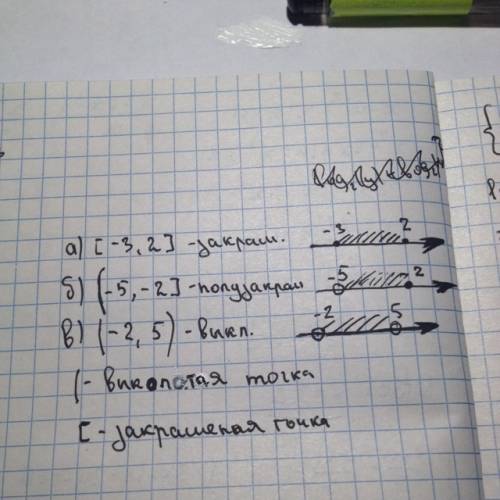 а) [-3, 2] - закраш. -3 2
б) (-5, -2] - полузакраш -5 2
в) (-2, 5) - выкл. -2 5
( - выколотая точка
[ - закрашеная точка